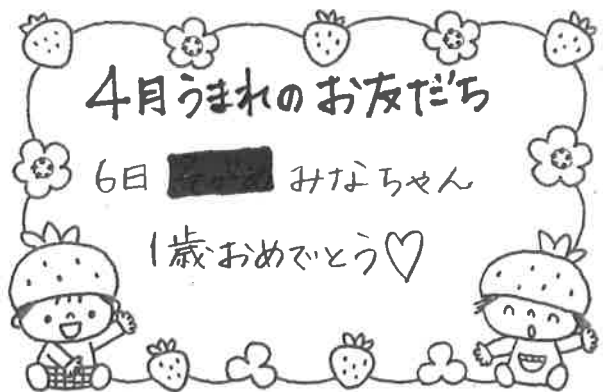 4月うまれのお友だち
6日 みなちゃん
1歳おめでとう♡